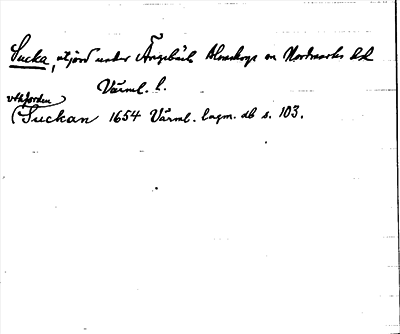 Sucka, utjord under Ängebäck Blomskogs sn Nordmarks hd
Värml. l.
uthjorden
(Suckan 1654 Värml. lagm. db s. 103.